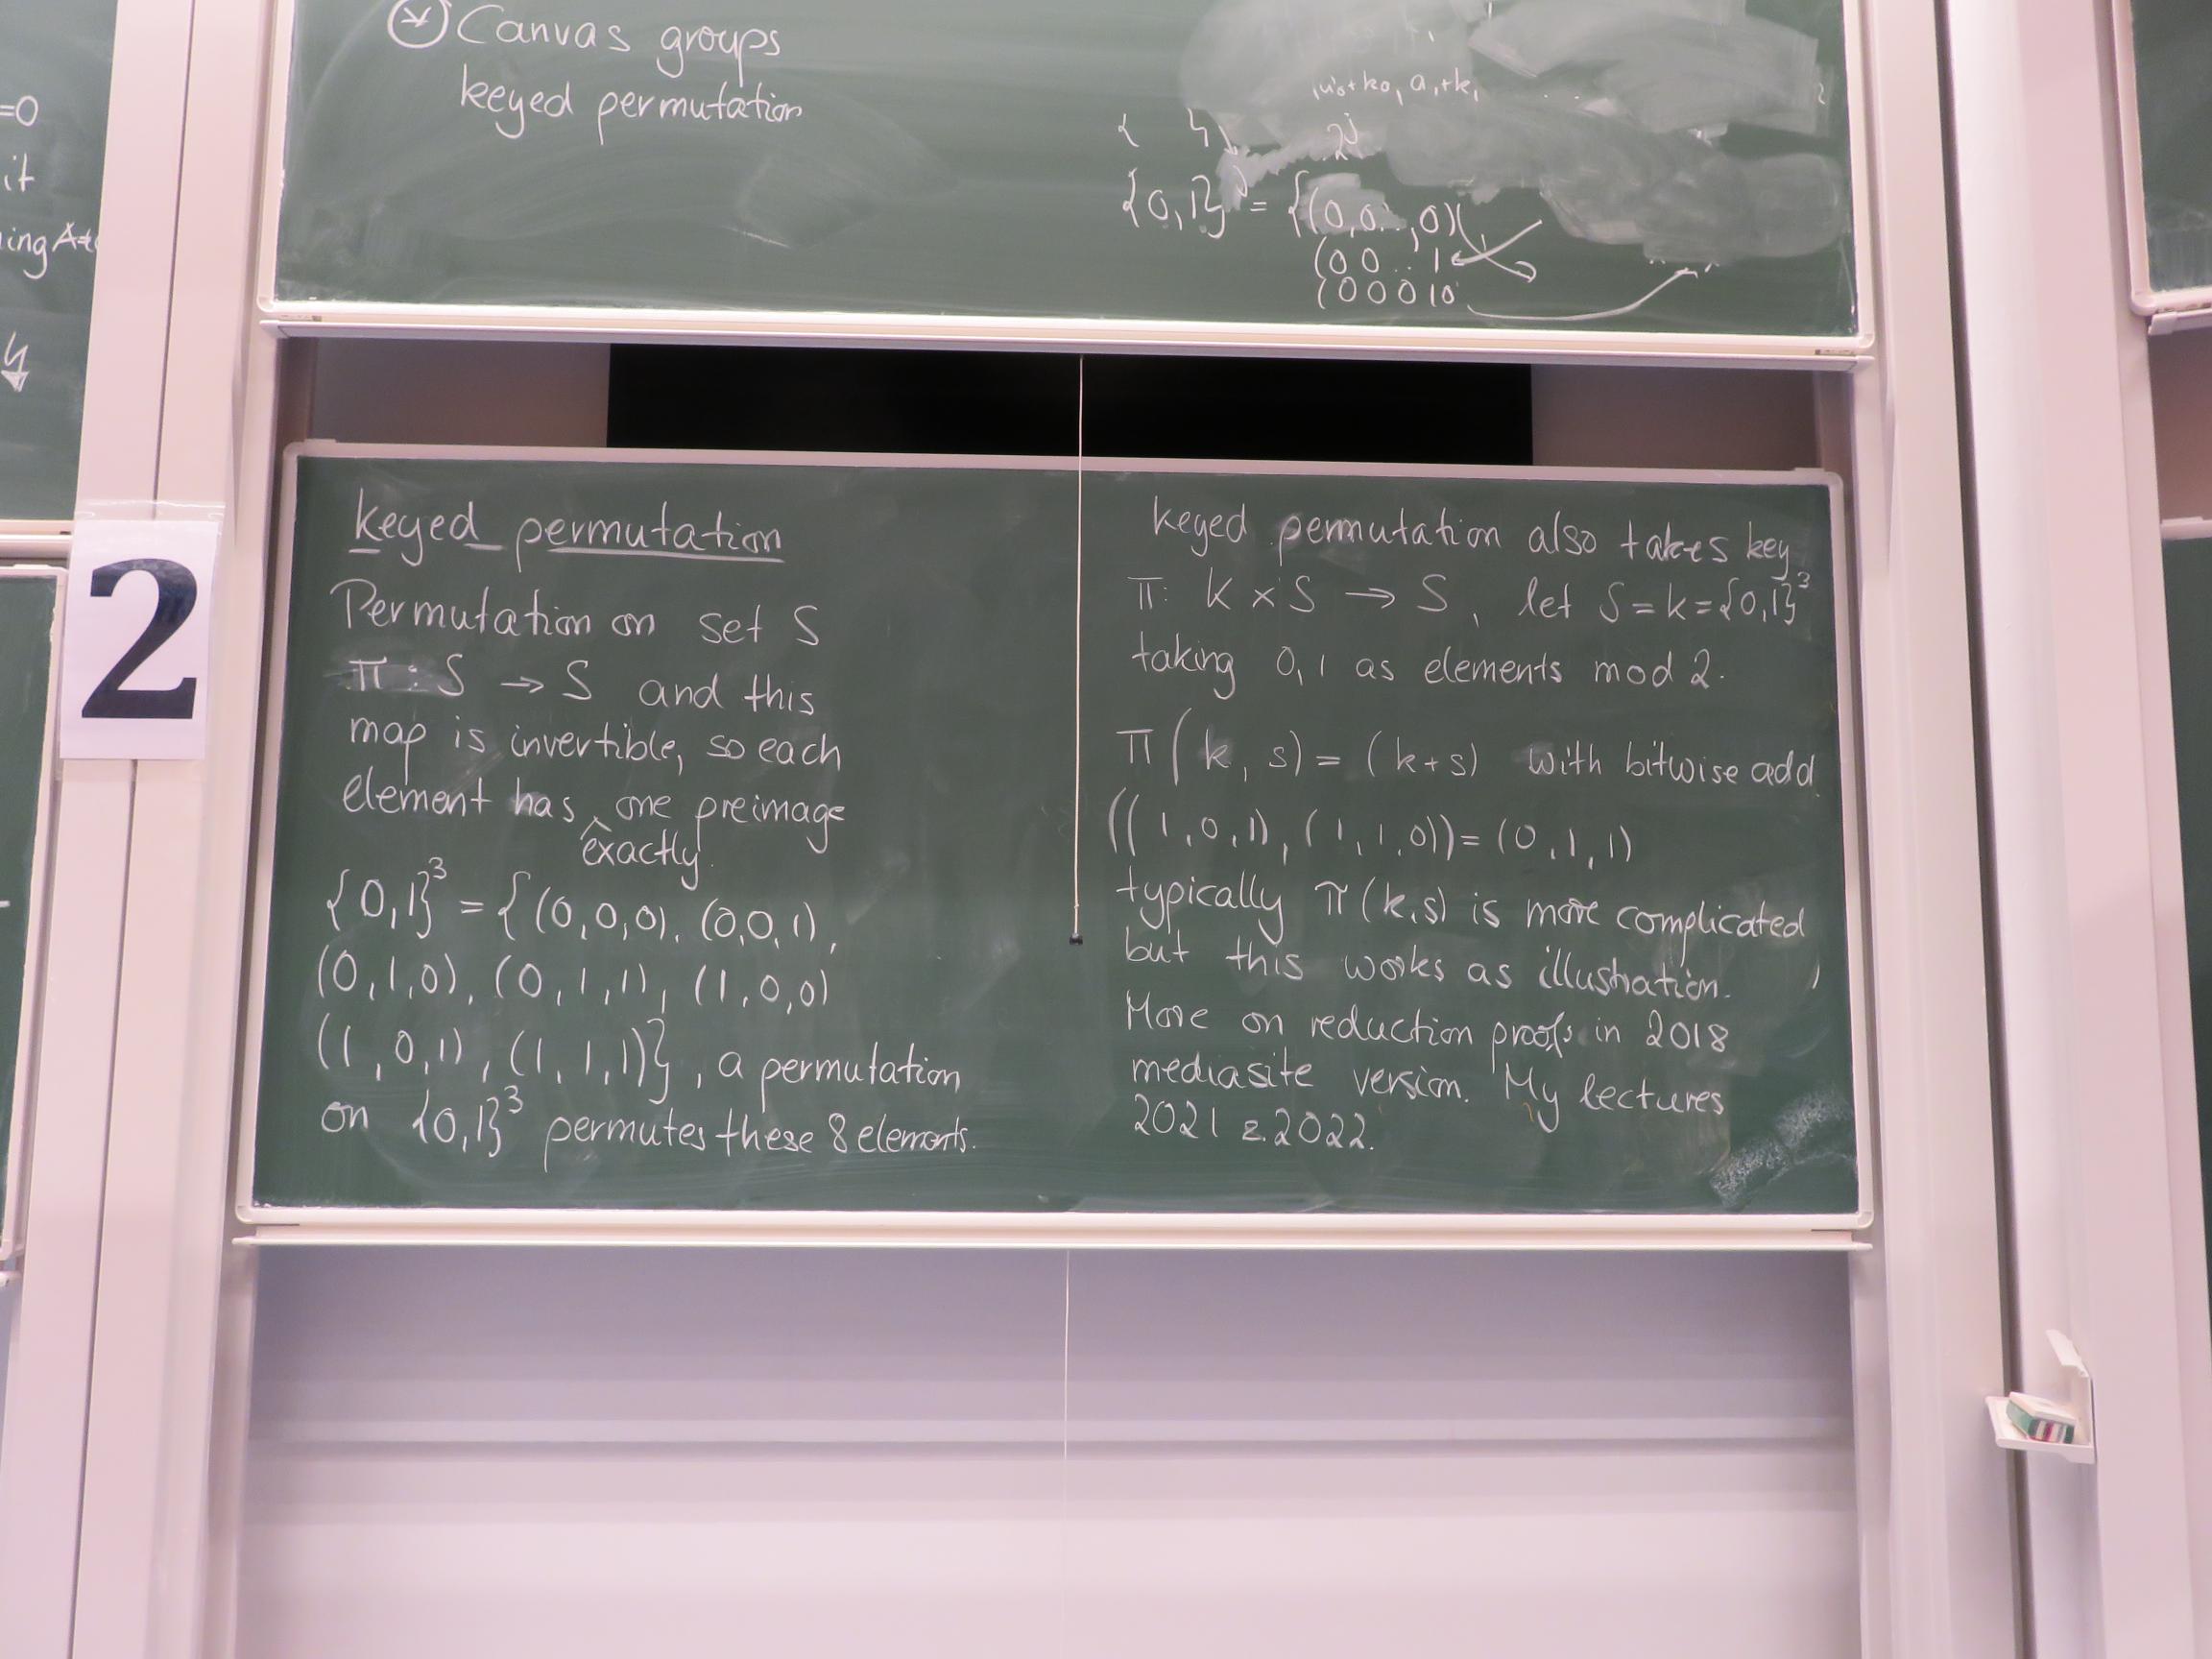 Canvas groups
keyed permutation
=0
it
{0,1} = {(0,0..,0)
(0 0 .. 1
(0 0 0 1 0
2
keyed permutation
Permutation on set S
π : S → S and this
map is invertible, so each
element has ^ one preimage
exactly.
{0,1}³ = {(0,0,0), (0,0,1),
(0,1,0), (0,1,1), (1,0,0)
(1,0,1), (1,1,1)}, a permutation
on {0,1}³ permutes these 8 elements.
keyed permutation also takes key
π: K × S → S, let S = K = {0,1}³
taking 0,1 as elements mod 2.
π(k, s) = (k+s) with bitwise add.
((1,0,1), (1,1,0)) = (0,1,1)
typically π(k,s) is more complicated,
but this works as illustration.
More on reduction proofs in 2018
mediasite version. My lectures
2021 & 2022.